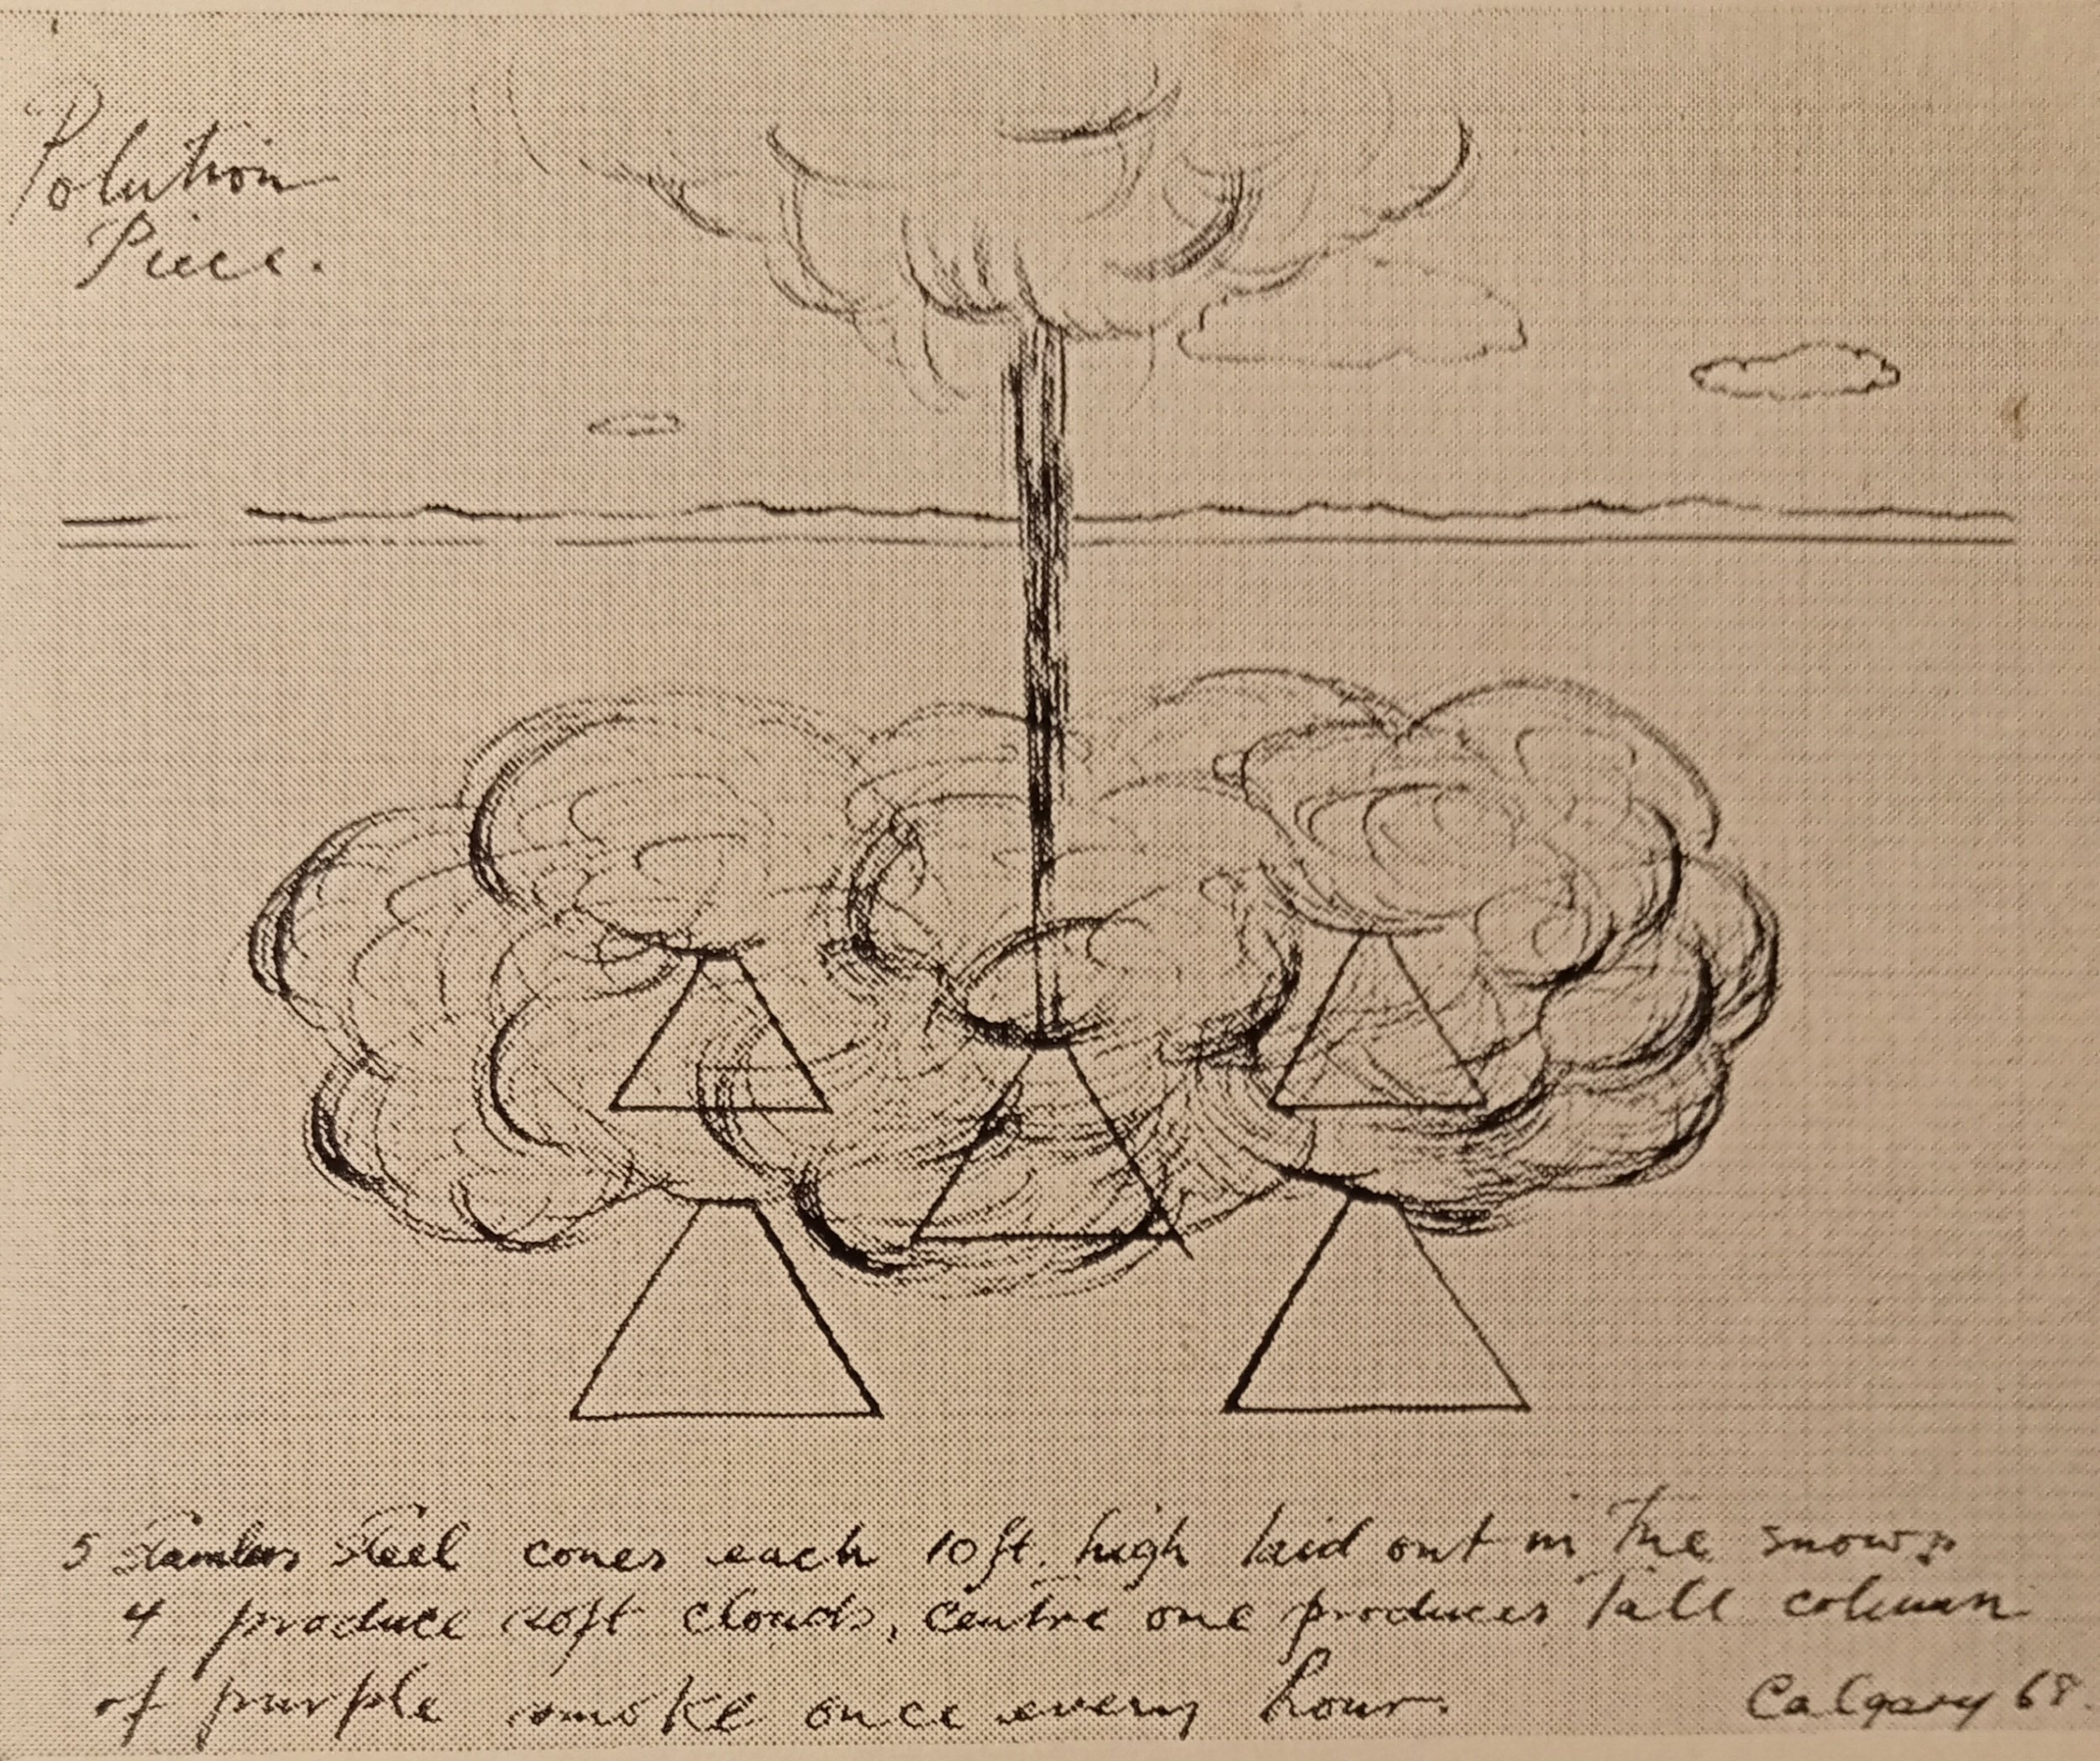 Polution
Piece.
5 Stainless Steel cones each 10ft. high laid out in The snow,
4 produce soft clouds, centre one produces Tall column
of purple smoke once every hour.
Calgary 68.